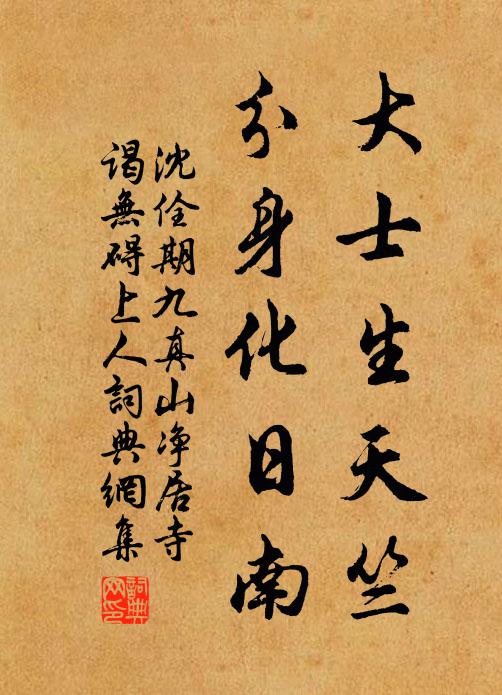 大士生天竺
分身化日南
沈佺期九真山净居寺
謁無碍上人詞典網集
詞典网印